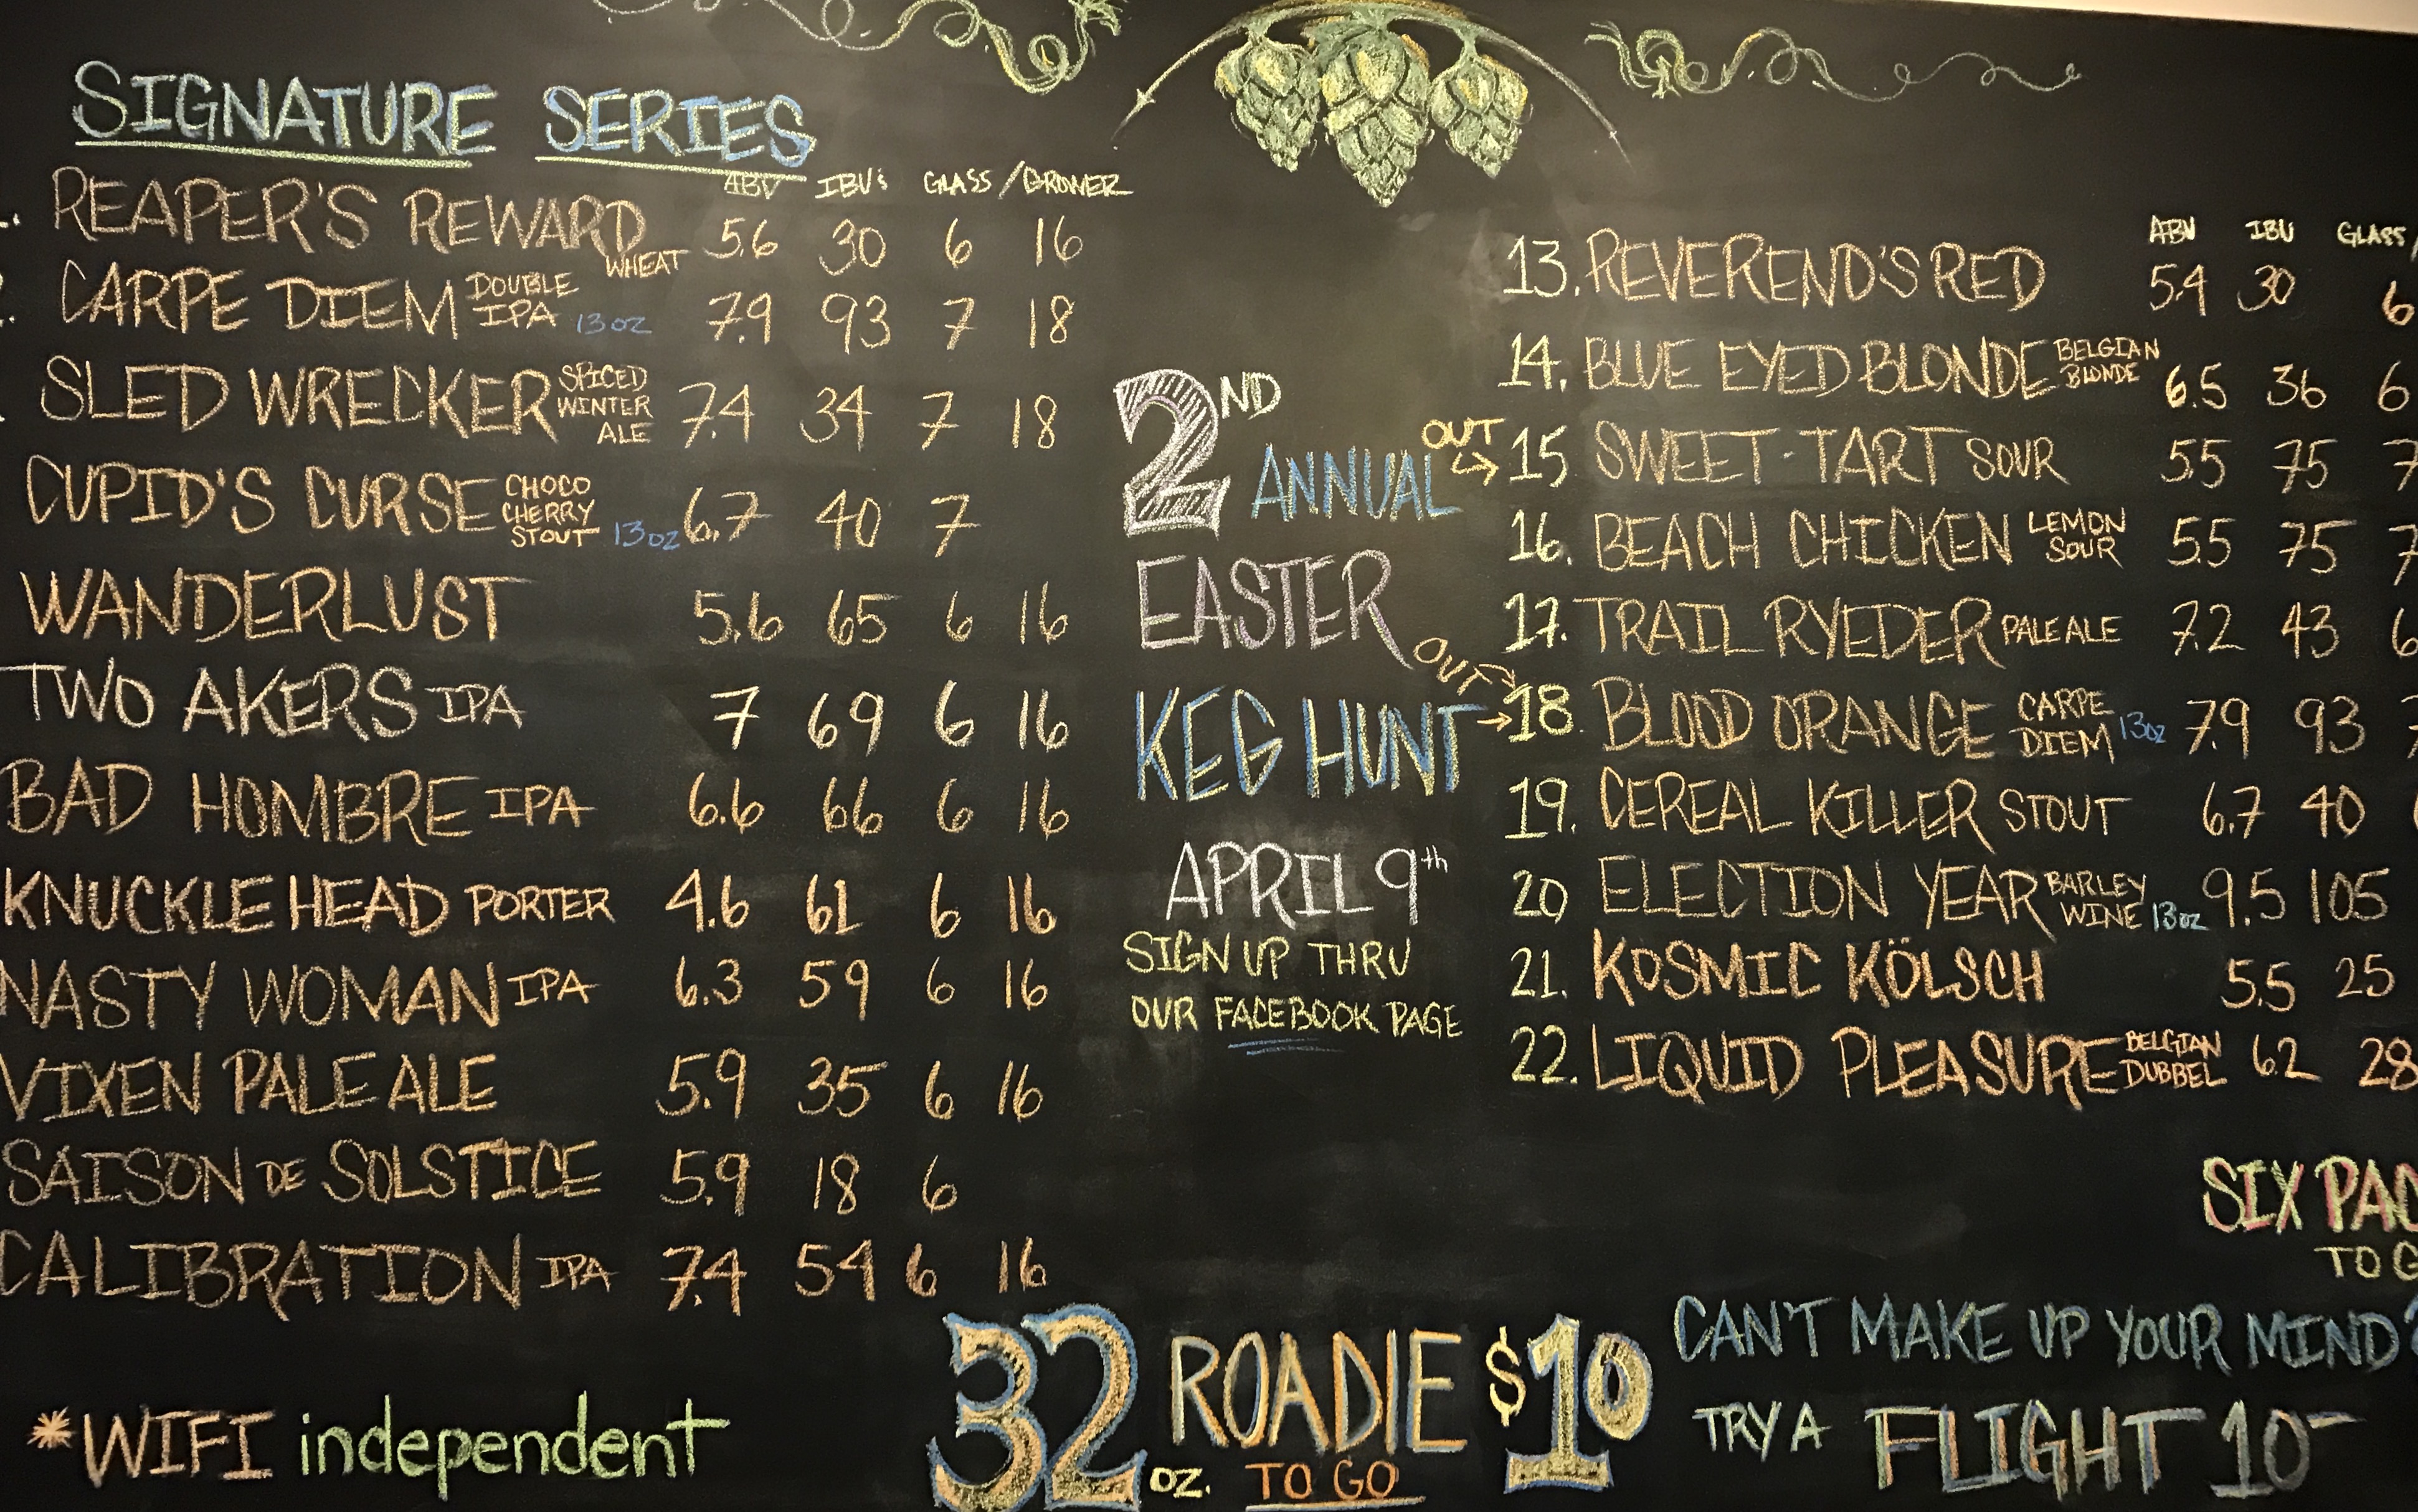 SIGNATURE SERIES
ABV IBU's GLASS / GROWER
REAPER'S REWARD WHEAT 5.6 30 6 16
CARPE DIEM DOUBLE IPA 13oz 7.9 93 7 18
SLED WRECKER SPICED WINTER ALE 7.4 34 7 18
CUPID'S CURSE CHOCO CHERRY STOUT 13oz 6.7 40 7
WANDERLUST 5.6 65 6 16
TWO AKERS IPA 7 69 6 16
BAD HOMBRE IPA 6.6 66 6 16
KNUCKLEHEAD PORTER 4.6 61 6 16
NASTY WOMAN IPA 6.3 59 6 16
VIXEN PALE ALE 5.9 35 6 16
SAISON DE SOLSTICE 5.9 18 6
CALIBRATION IPA 7.4 54 6 16
*WIFI independent
2ND
ANNUAL
EASTER
KEG HUNT
APRIL 9th
SIGN UP THRU
OUR FACEBOOK PAGE
ABV IBU GLASS/
13. REVEREND'S RED 5.4 30 6
14. BLUE EYED BLONDE BELGIAN BLONDE 6.5 36 6
OUT → 15 SWEET-TART SOUR 5.5 75 7
16. BEACH CHICKEN LEMON SOUR 5.5 75 7
17. TRAIL RYEDER PALE ALE 7.2 43 6
OUT → 18 BLOOD ORANGE CARPE DIEM 13oz 7.9 93 7
19. CEREAL KILLER STOUT 6.7 40
20 ELECTION YEAR BARLEY WINE 13oz 9.5 105
21. KOSMIC KÖLSCH 5.5 25
22. LIQUID PLEASURE BELGIAN DUBBEL 6.2 28
SIX PAC
TO G
32 oz. ROADIE $10
TO GO
CAN'T MAKE UP YOUR MIND?
TRY A FLIGHT 10-